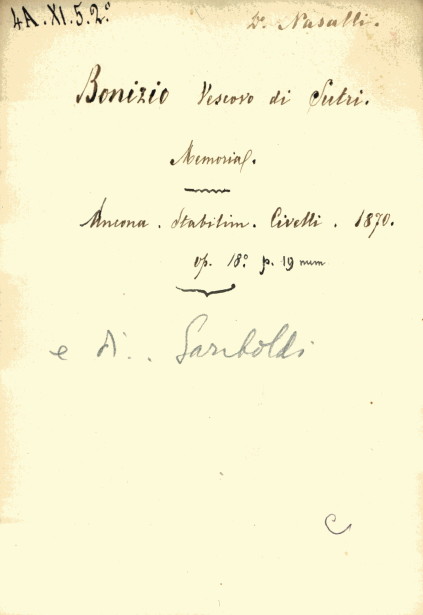 4A.XI.5.2º
Dr. Nasalli.
Bonizio Vescovo di Sutri.
Memorial.
Ancona. Stabilim. Civelli. 1870.
op. 18º p. 19 num
e di.. Gariboldi
C